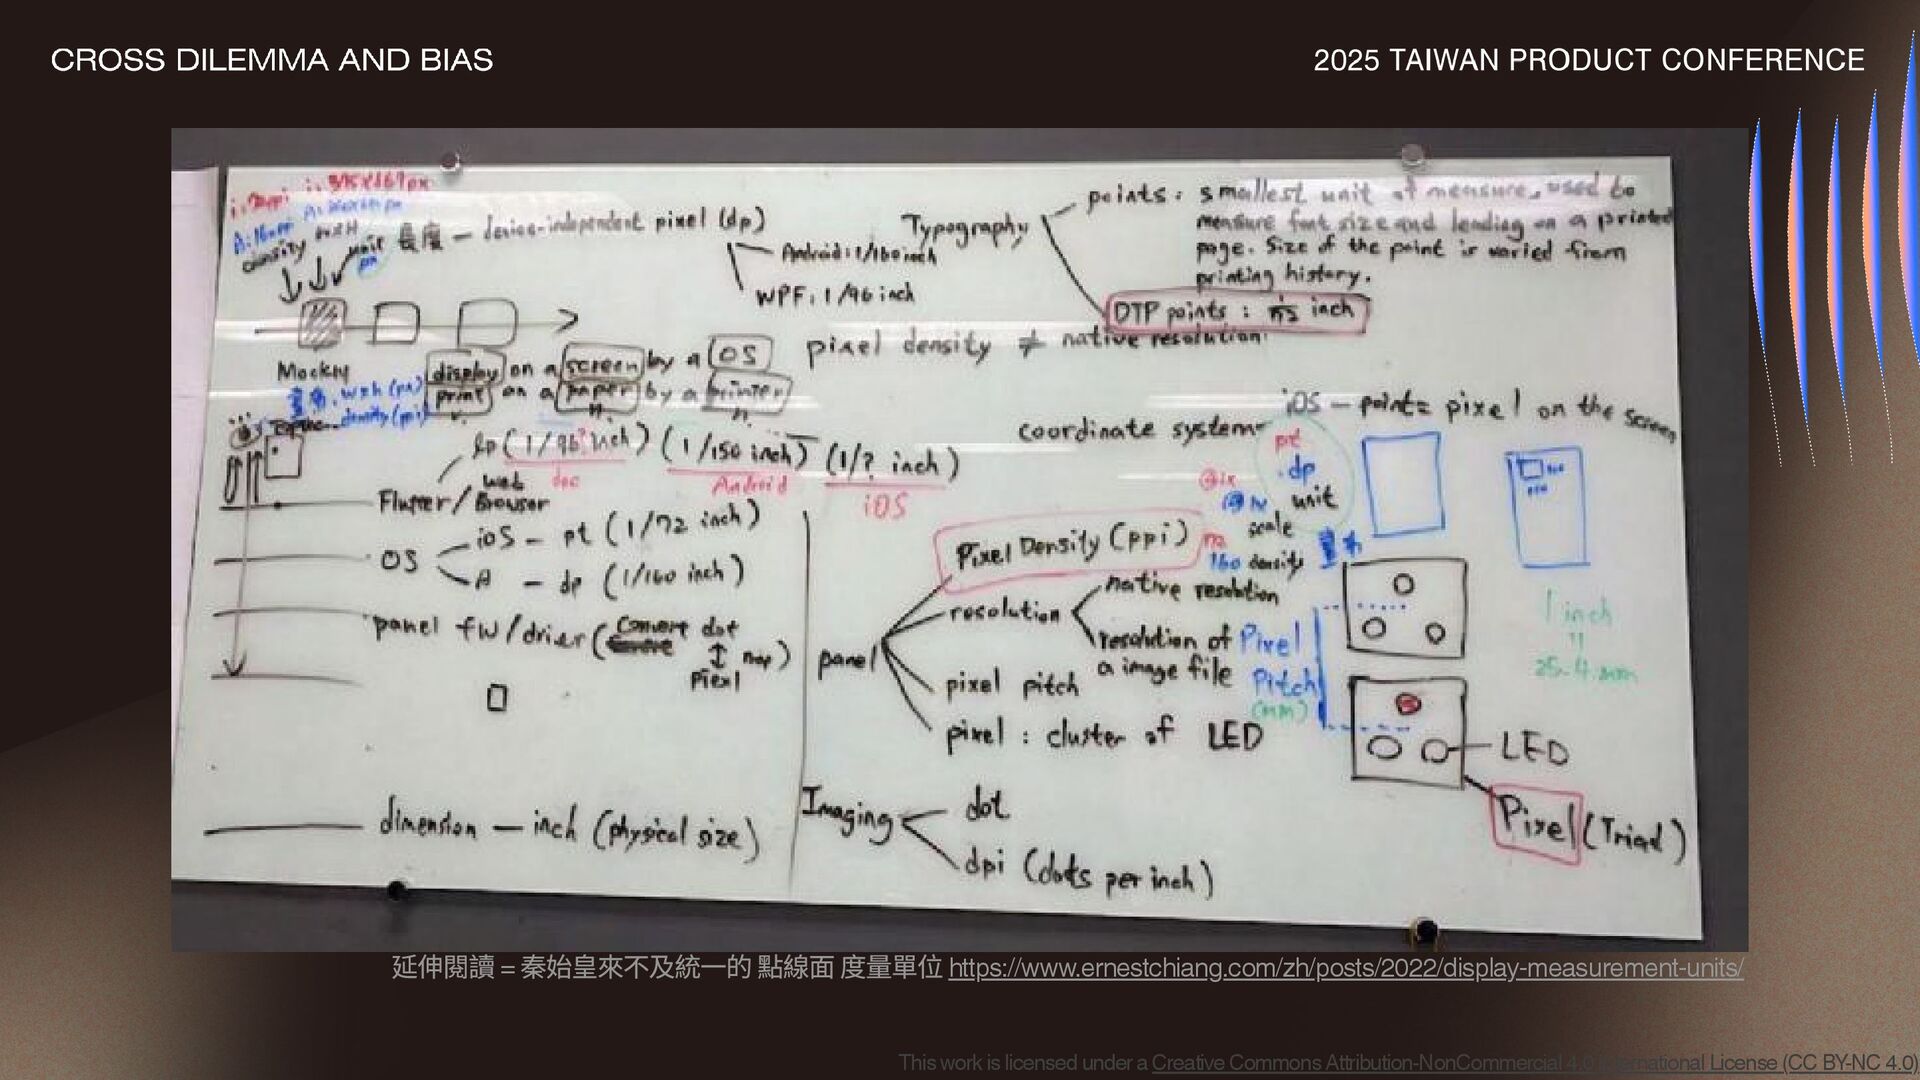 CROSS DILEMMA AND BIAS
2025 TAIWAN PRODUCT CONFERENCE
density
unit
長度 — device-independent pixel (dp)
Android: 1/160 inch
WPF: 1/96 inch
Typography
points: smallest unit of measure, used to
measure font size and leading on a printed
page. Size of the point is varied from
printing history.
DTP points : inch
pixel density ≠ native resolution
display on a screen by a OS
print on a paper by a printer
density (ppi)
(1/96? inch) (1/150 inch) (1/? inch)
Android
iOS
Flutter/ web Browser
OS
iOS - pt (1/72 inch)
A - dp (1/160 inch)
panel fw/drier (Convert dot ↕ map)
Piexl
dimension — inch (physical size)
coordinate system
iOS - point = pixel on the screen
pt
dp
unit
scale
160 density
panel
Pixel Density (ppi)
resolution
native resolution
resolution of
a image file
pixel pitch
pixel : cluster of LED
Pixel
Pitch
(mm)
1 inch
=
25.4 mm
LED
Pixel (Triad)
Imaging
dot
dpi (dots per inch)
延伸閱讀 = 秦始皇來不及統一的 點線面 度量單位 https://www.ernestchiang.com/zh/posts/2022/display-measurement-units/
This work is licensed under a Creative Commons Attribution-NonCommercial 4.0 International License (CC BY-NC 4.0)